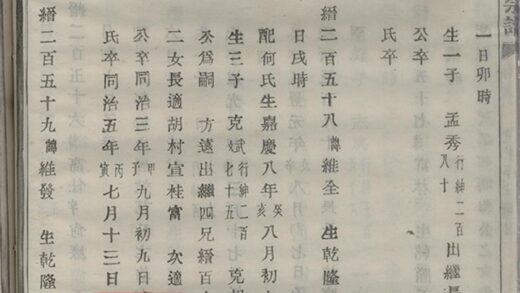 宗譜
一日卯時
生一子 孟秀行紳二百八十出繼
公卒
氏卒
縉二百五十八諱維全 生乾隆
日戌時
配何氏生嘉慶八年癸亥八月初
生三子 克斌行紳二百七十五 克
公爲嗣 方遠出繼四兄縉百
二女長適胡村宣桂富 次適
公卒同治三年甲子九月初九日
氏卒同治五年丙寅七月十三日
縉二百五十九諱維發 生乾隆